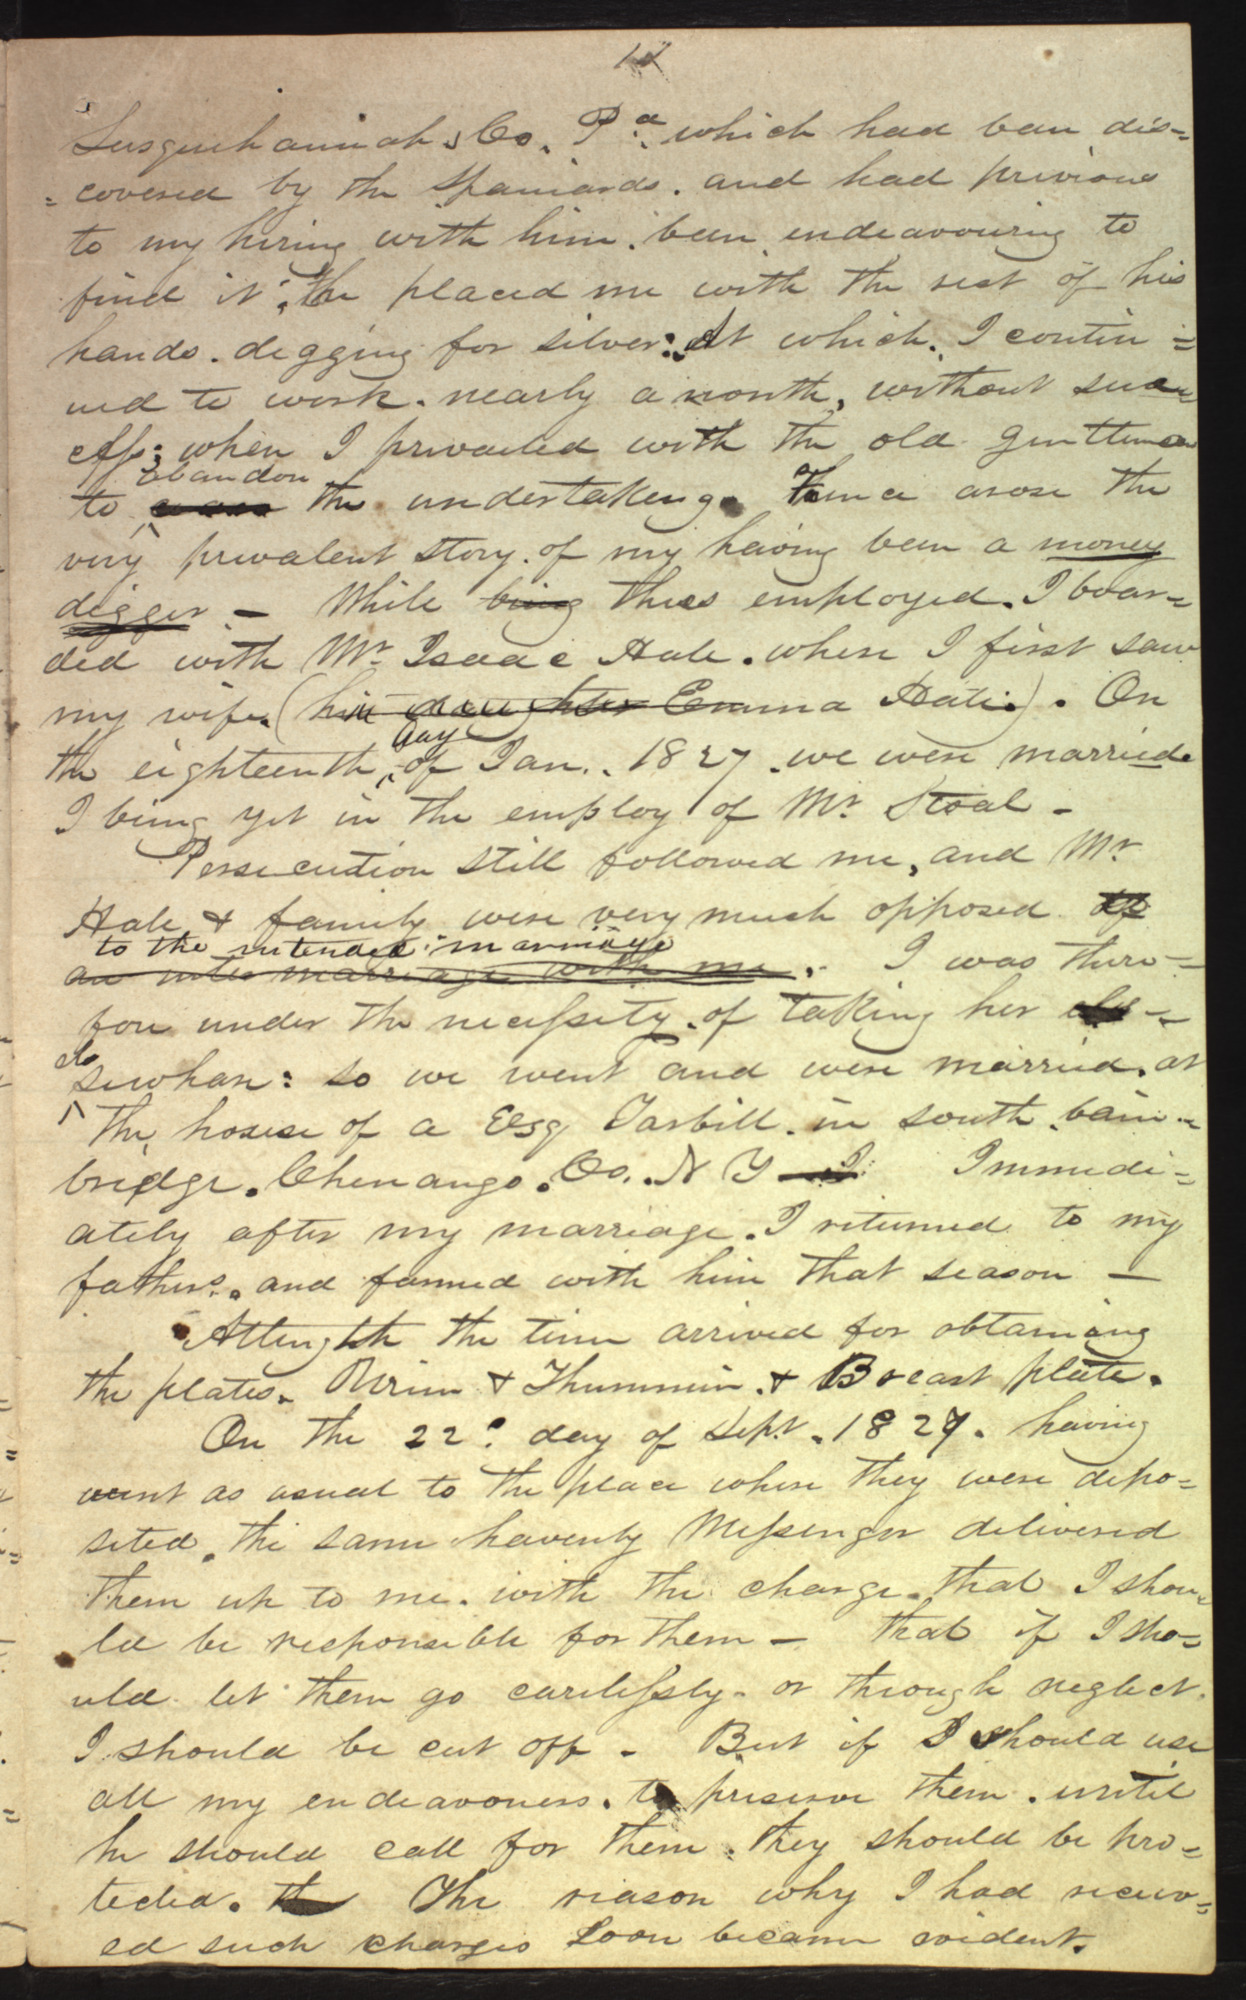 12
Susquehannah, Co. Pa. which had been dis=
=covered by the Spaniards. and had privious
to my hiring with him. been endeavouring to
find it; he placed me with the rest of his
hands. degging for silver: At which. I contin=
ued to work. nearly a month, without succ=
eſs; when I prevailed with the old gentleman
abandon
to the undertaking. Hence arose the
very prevalent story. of my having been a money
digger. — While being thus employed. I boar=
ded with Mr. Isaac Hale. where I first saw
my wife. (his daughter Emma Hale.). On
day
the eighteenth, of Jan.. 1827. we were married.
I being yet in the employ of Mr. Stoal —
Persecution still followed me, and Mr
Hale & family were very much opposed of
to the intended marriage
an inter marriage with me. I was there=
fore under the neceſsity. of taking her
els
sewhare: so we went and were married. at
the house of a Esq Tarbill. in south bain=
bridge. Chenango. Co.. N Y I Immedi=
ately after my marriage. I returned to my
fathers. and farmed with him that season —
Attength the time arrived for obtaining
the plates. Urim & Thummim. & Breast plate.
On the 22d. day of Sept. 1827. having
went as usual to the place where they were depo=
sited. the same havenly Meſsenger delivered
them up to me. with the charge. that I shou=
ld be responsible for them — that if I sho=
uld let them go careleſsly. or through neglect.
I should be cut off. But if I should use
all my endeavouers. to preserve them. until
he should call for them. they should be pro=
tected. The reason why I had receiv=
ed such charges soon became evident.